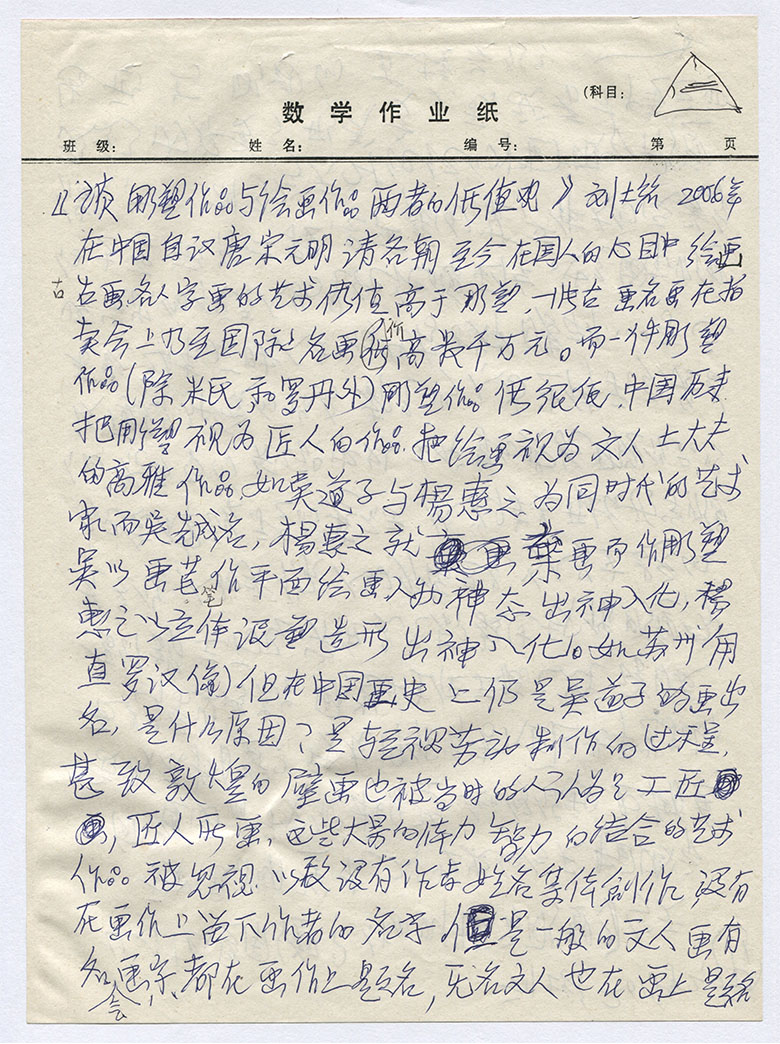 (科目:
数学作业纸
班 级: 姓 名: 编 号: 第 页
谈 雕塑作品与绘画作品 两者的价值观》 刘士铭 2006年
在中国自汉唐宋元明清各朝至今在国人的心目中绘画
古
古画名人字画的艺术价值高于雕塑,一些古画名画在拍
卖会上乃至国际上名画价高最千万元。而一件雕塑
作品(除米氏和罗丹外)雕塑作品价很低,中国历来
把雕塑视为匠人的作品.把绘画视为文人士大夫
的高雅作品 如吴道子与楊惠之为同时代的艺术
家而吴先成名,楊惠之就 棄画而作雕塑
吴以画笔作平面绘画人物神态出神入化,楊
惠之以立体泥塑造形出神入化。如苏州甪
直罗汉像)但在中国画史上仍是吴道子的画出
名,是什么原因?是轻视劳动制作的过程,
甚致敦煌的壁画也被当时的人认为是工匠
画,匠人所画,这些大量的体力智力的结合的艺术
作品被忽视以致没有作者姓名集体創作没有
在画作上留下作者的名字但是一般的文人画有
名画家都在画作上题名,无名文人也在画上题名
会